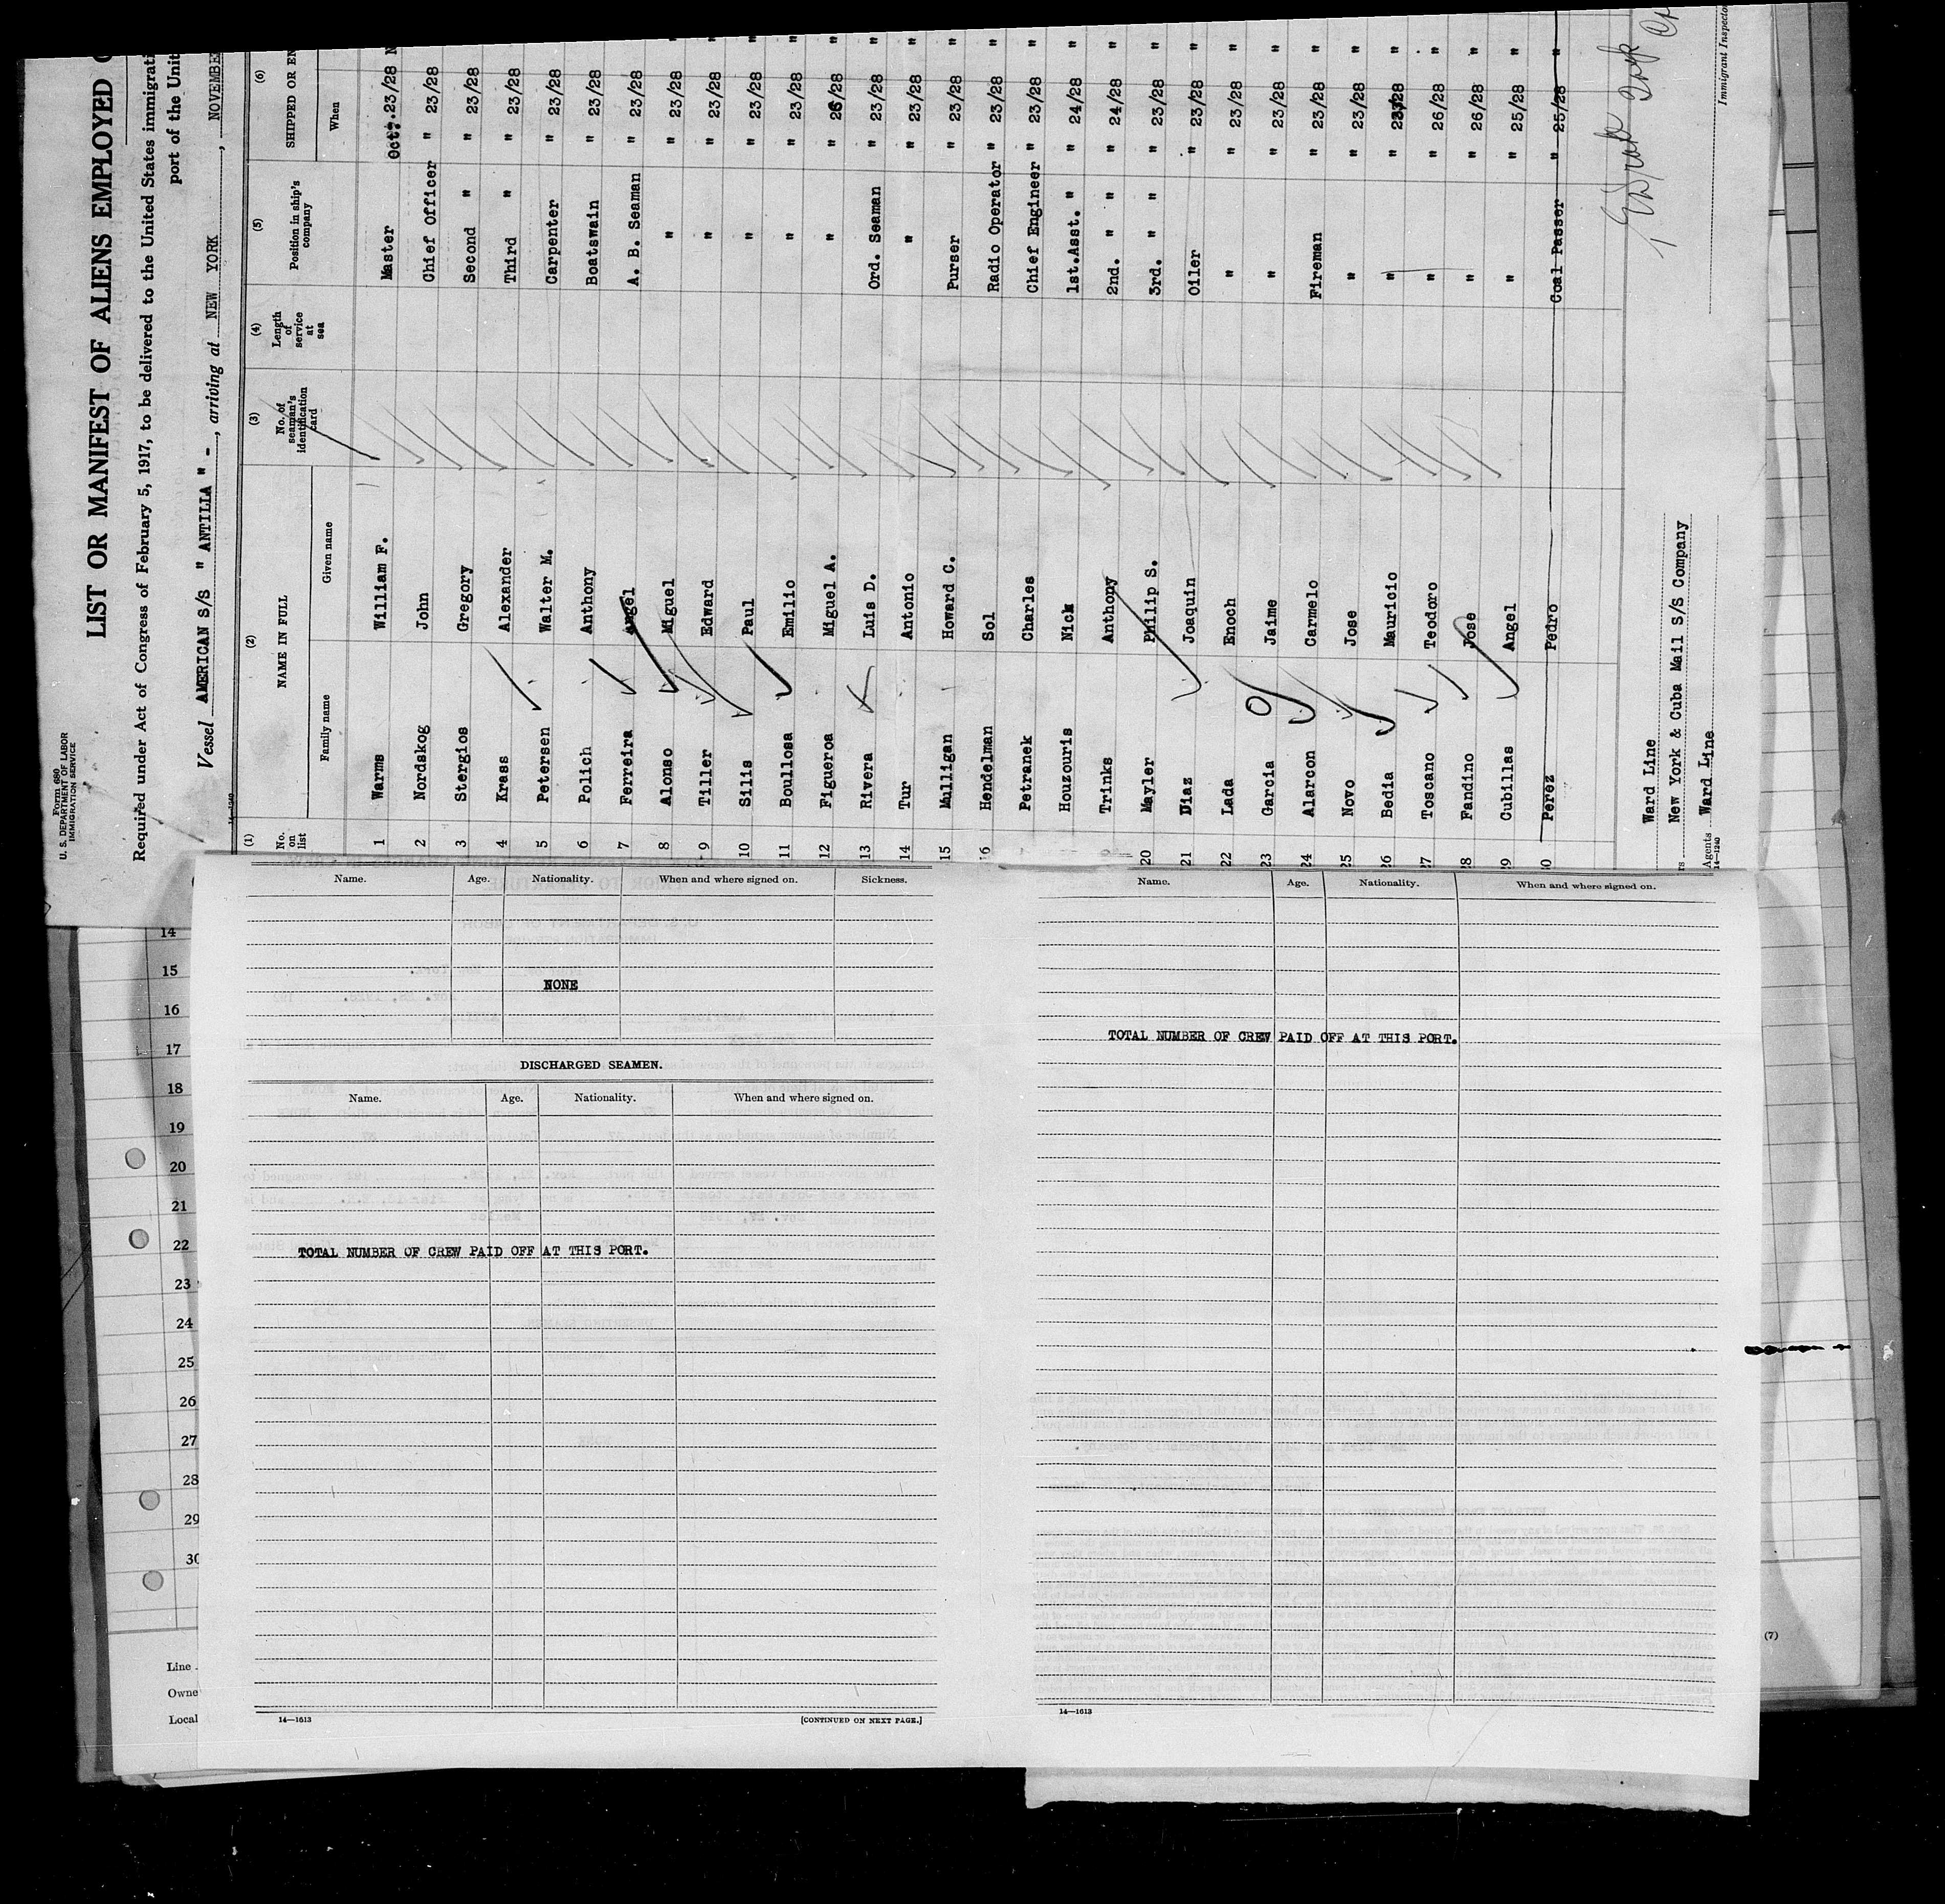 Form 680
U. S. DEPARTMENT OF LABOR
IMMIGRATION SERVICE
LIST OR MANIFEST OF ALIENS EMPLOYED
Required under Act of Congress of February 5, 1917, to be delivered to the United States immigrati
port of the Unit
Vessel AMERICAN S/S " ANTILLA " -, arriving at NEW YORK, NOVEMBE
14-1240
(1) (2) (3) (4) (5) (6)
No. on list NAME IN FULL No. of seaman's identification card Length of service at sea Position in ship's company SHIPPED OR EN
Family name Given name When
1 Warms William F. Master Oct. 23/28 N
2 Nordskog John Chief Officer " 23/28
3 Stergios Gregory Second " " 23/28
4 Krass Alexander Third " " 23/28
5 Petersen Walter M. Carpenter " 23/28
6 Polich Anthony Boatswain " 23/28
7 Ferreira Angel A. B. Seaman " 23/28
8 Alonso Miguel " " 23/28 "
9 Tiller Edward " " 23/28 "
10 Silis Paul " " 23/28 "
11 Boullosa Emilio " " 23/28 "
12 Figueroa Miguel A. " " 26/28 "
13 Rivera Luis D. Ord. Seaman " 23/28 "
14 Tur Antonio " " 23/28 "
15 Mulligan Howard C. Purser " 23/28 "
16 Hendelman Sol Radio Operator " 23/28 "
Petranek Charles Chief Engineer " 23/28 "
Houzouris Nick 1st.Asst. " " 24/28 "
Trinks Anthony 2nd. " " " 24/28 "
20 Mayler Philip S. 3rd. " " " 23/28 "
21 Diaz Joaquin Oiler " 23/28 "
22 Lada Enoch " " 23/28 "
23 Garcia Jaime " " 23/28 "
24 Alarcon Carmelo Fireman " 23/28 "
25 Novo Jose " " 23/28 "
26 Bedia Mauricio " " 23/28 "
27 Toscano Teodoro " " 26/28 "
28 Fandino Jose " " 26/28 "
29 Cubillas Angel " " 25/28 "
30 Perez Pedro Coal Passer " 25/28 "
Ward Line
rs New York & Cuba Mail S/S Company
Agents Ward Line
14-1240
Immigrant Inspecto
Name. Age. Nationality. When and where signed on. Sickness.
NONE
DISCHARGED SEAMEN.
Name. Age. Nationality. When and where signed on.
TOTAL NUMBER OF CREW PAID OFF AT THIS PORT.
14—1613
[CONTINUED ON NEXT PAGE.]
Name. Age. Nationality. When and where signed on.
TOTAL NUMBER OF CREW PAID OFF AT THIS PORT.
14—1613
14
15
16
17
18
19
20
21
22
23
24
25
26
27
28
29
30
Line
Owne
Local
(7)